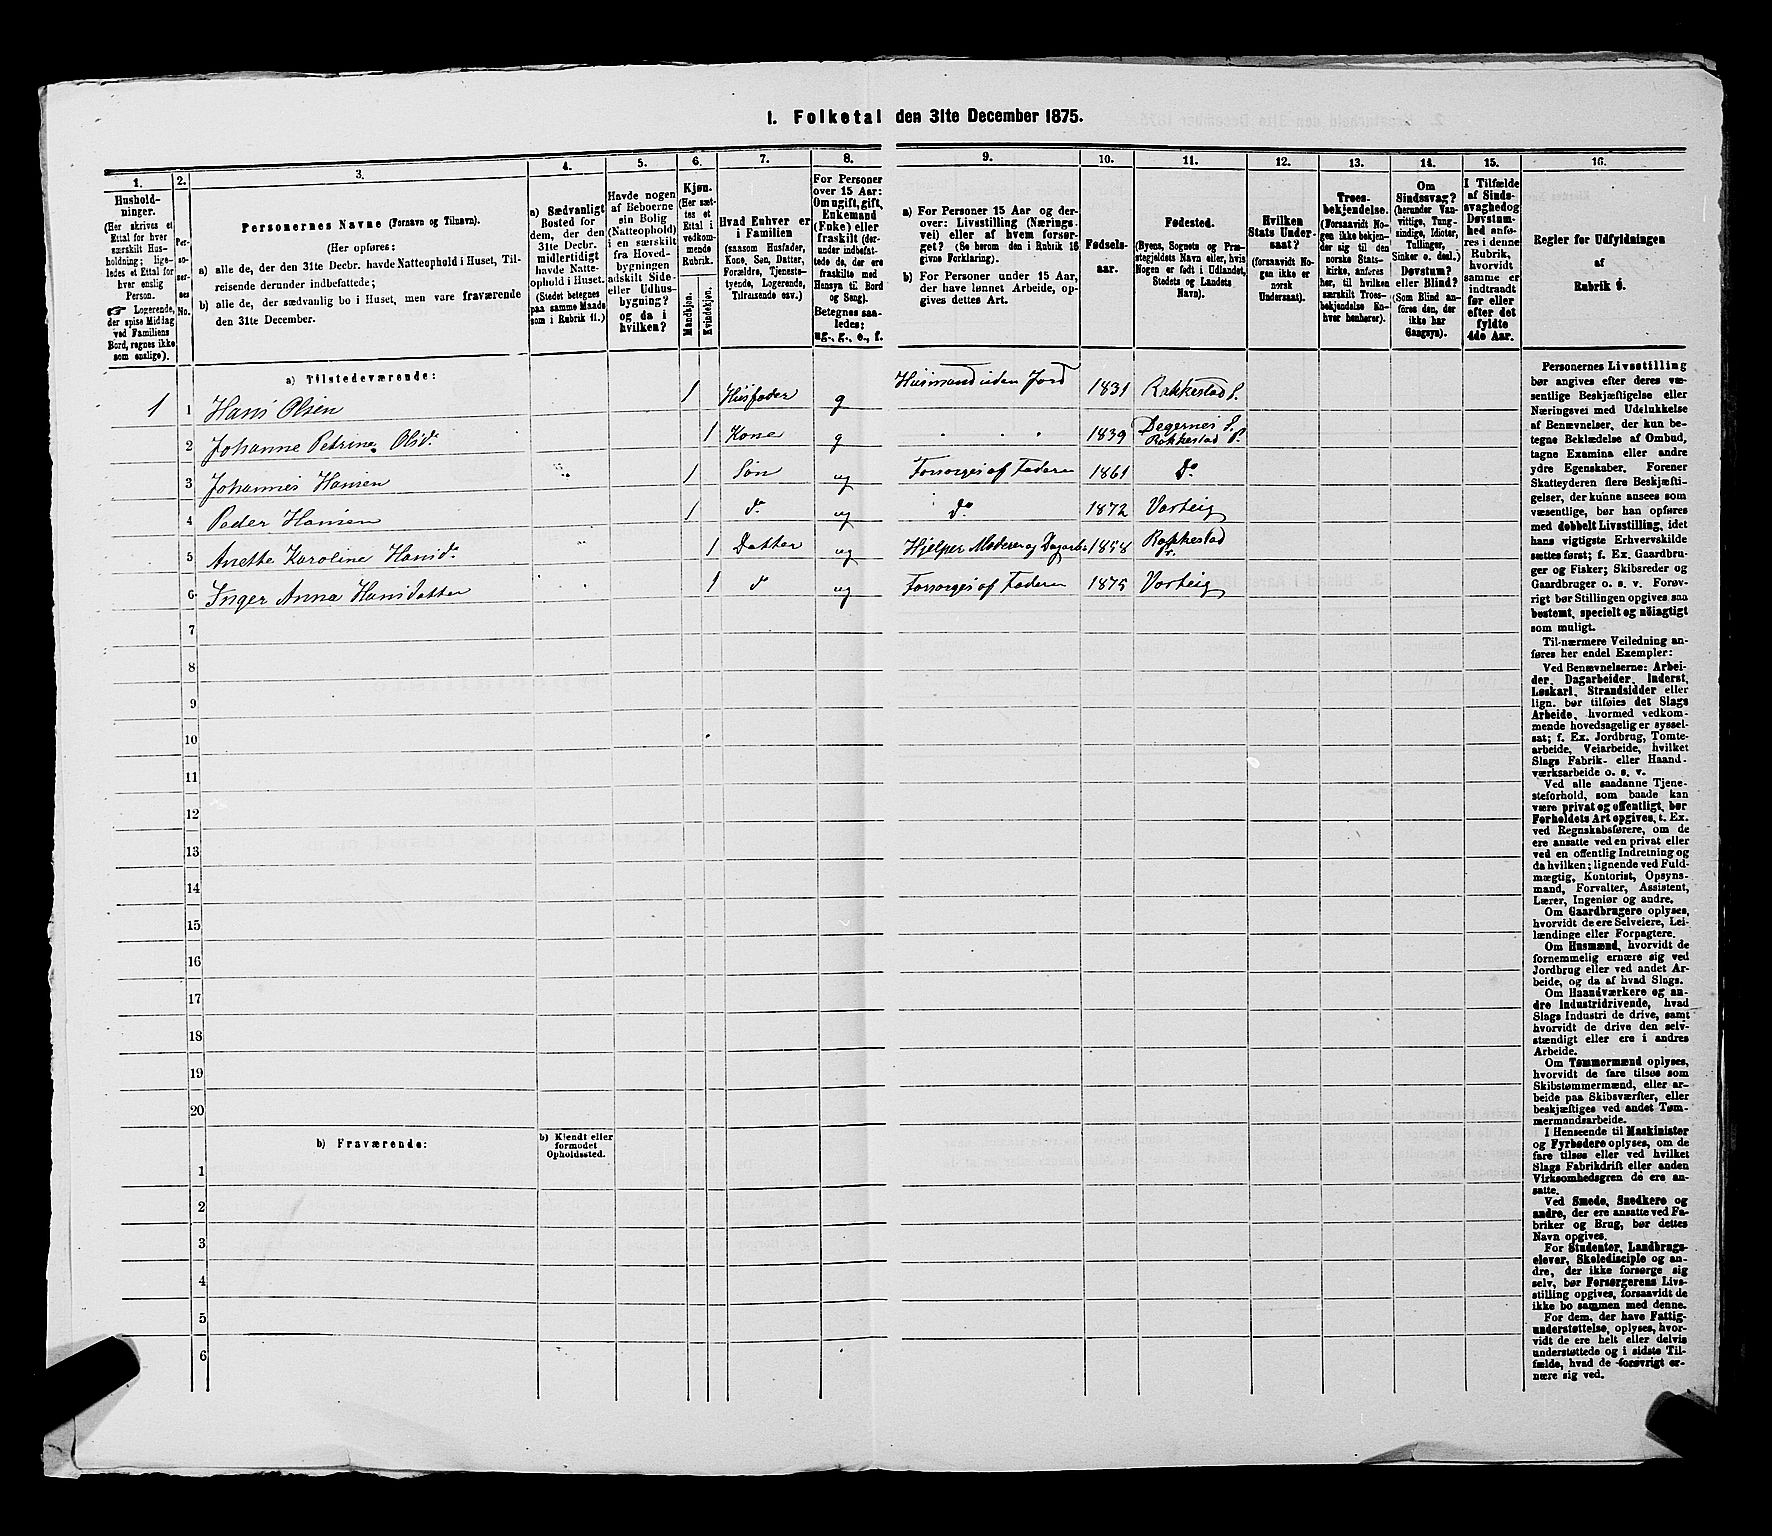 1. Folketal den 31te December 1875.
1.
Hushold-
ninger.
(Her skrives et
Ettal for hver
særskilt Hus-
holdning; lige-
ledes et Ettal for
hver enslig
Person.
Logerende,
der spise Middag
ved Familiens
Bord, regnes ikke
som enslige).
2.
Per-
so-
ner-
nes
No.
3.
Personernes Navne (Fornavn og Tilnavn).
(Her opføres:
a) alle de, der den 31te Decbr. havde Natteophold i Huset, Til-
reisende derunder indbefattede;
b) alle de, der sædvanlig bo i Huset, men vare fraværende
den 31te December.
4.
a) Sædvanligt
Bosted for
dem, der den
31te Decbr.
midlertidigt
havde Natte-
ophold i Huset.
(Stedet betegnes
paa samme Maade
som i Rubrik 11.)
5.
Havde nogen
af Beboerne
sin Bolig
(Natteophold)
i en særskilt
fra Hoved-
bygningen
adskilt Side-
eller Udhus-
bygning?
og da i
hvilken?
6.
Kjøn.
(Her sæt-
tes et
Ettal i
vedkom-
mende
Rubrik.
Mandkjøn.
Kvindekjøn.
7.
Hvad Enhver er
i Familien
(saasom Husfader,
Kone, Søn, Datter,
Forældre, Tjeneste-
tyende, Logerende,
Tilreisende osv.)
8.
For Personer
over 15 Aar:
Om ugift, gift,
Enkemand
(Enke) eller
fraskilt (der-
under indbefat-
tede de, der ere
fraskilte med
Hensyn til Bord
og Seng).
Betegnes saa-
ledes:
ug., g., e., f.
9.
a) For Personer 15 Aar og der-
over: Livsstilling (Nærings-
vei) eller af hvem forsør-
get? (Se herom den i Rubrik 16
givne Forklaring).
b) For Personer under 15 Aar,
der have lønnet Arbeide, op-
gives dettes Art.
10.
Fødsels-
aar.
11.
Fødested.
(Byens, Sognets og Præ-
stegjeldets Navn eller, hvis
Nogen er født i Udlandet,
Stedets og Landets
Navn).
12.
Hvilken
Stats Under-
saat?
(forsaavidt No-
gen ikke er
norsk
Undersaat).
13.
Troes-
bekjendelse.
(Forsaavidt No-
gen ikke bekjen-
der sig til den
norske Stats-
kirke, anføres
her, til hvilken
særskilt Troes-
bekjendelse En-
hver henhører).
14.
Om
Sindssvag?
(herunder Van-
vittige, Tung-
sindige, Idioter,
Tullinger,
Sinker o. desl.)
Døvstum?
eller Blind?
(Som Blind an-
føres den, der
ikke har
Gangsyn).
15.
I Tilfælde
af Sinds-
svaghed og
Døvstum-
hed anfø-
res i denne
Rubrik,
hvorvidt
samme er
indtraadt
før eller
efter det
fyldte
4de Aar.
16.
Regler for Udfyldningen
af
Rubrik 9.
a) Tilstedeværende:
1 1 Hans Olsen 1 Husfader g Husmand uden Jord 1831 Rakkestad S.
2 Johanne Petrine Olsd. 1 Kone g 1839 Degernes S. Rakkestad P.
3 Johannes Hansen 1 Søn ug Forsørges af Faderen 1861 Do
4 Peder Hansen 1 do ug do 1872 Varteig
5 Anette Karoline Hansd. 1 Datter ug Hjelper Moderen og Dagarb. 1858 Rakkestad
6 Inger Anna Hansdatter 1 do ug Forsørges af Faderen 1875 Varteig
7
8
9
10
11
12
13
14
15
16
17
18
19
20
b) Fraværende:
b) Kjendt eller
formodet
Opholdssted.
1
2
3
4
5
6
Personernes Livsstilling
bør angives efter deres væ-
sentlige Beskjæftigelse eller
Næringsvei med Udelukkelse
af Benævnelser, der kun be-
tegne Beklædelse af Ombud,
tagne Examina eller andre
ydre Egenskaber. Forener
Skatteyderen flere Beskjæfti-
gelser, der kunne ansees som
væsentlige, bør han opføres
med dobbelt Livsstilling, idet
hans vigtigste Erhvervskilde
sættes først; f. Ex. Gaardbru-
ger og Fisker; Skibsreder og
Gaardbruger o. s. v. Forøv-
rigt bør Stillingen opgives saa
bestemt, specielt og nøiagtigt
som muligt.
Til nærmere Veiledning an-
føres her endel Exempler:
Ved Benævnelserne: Arbei-
der, Dagarbeider, Inderst,
Løskarl, Strandsidder eller
lign. bør tilføies det Slags
Arbeide, hvormed vedkom-
mende hovedsagelig er syssel-
sat; f. Ex. Jordbrug, Tomte-
arbeide, Veiarbeide, hvilket
Slags Fabrik- eller Haand-
værksarbeide o. s. v.
Ved alle saadanne Tjene-
steforhold, som baade kan
være privat og offentligt, bør
Forholdets Art opgives, t. Ex.
ved Regnskabsførere, om de
ere ansatte ved en privat eller
ved en offentlig Indretning og
da hvilken; lignende ved Fuld-
mægtig, Kontorist, Opsyns-
mand, Forvalter, Assistent,
Lærer, Ingeniør og andre.
Om Gaardbrugere oplyses,
hvorvidt de ere Selveiere, Lei-
lændinge eller Forpagtere.
Om Husmænd, hvorvidt de
fornemmelig ernære sig ved
Jordbrug eller ved andet Ar-
beide, og da af hvad Slags.
Om Haandværkere og an-
dre Industridrivende, hvad
Slags Industri de drive, samt
hvorvidt de drive den selv-
stændigt eller ere i andres
Arbeide.
Om Tømmermænd oplyses,
hvorvidt de fare tilsøs som
Skibstømmermænd, eller ar-
beide paa Skibsværfter, eller
beskjæftiges ved andet Tøm-
mermandsarbeide.
I Henseende til Maskinister
og Fyrbødere oplyses, om de
fare tilsøs eller ved hvilket
Slags Fabrikdrift eller anden
Virksomhedsgren de ere an-
satte.
Ved Smede, Snedkere og
andre, der ere ansatte ved Fa-
briker og Brug, bør dettes
Navn opgives.
For Studenter, Landbrugs-
elever, Skoledisciple og an-
dre, der ikke forsørge sig
selv, bør Forsørgerens Livs-
stilling opgives, forsaavidt de
ikke bo sammen med denne.
For dem, der have Fattig-
understøttelse, oplyses, hvor-
vidt de ere helt eller delvis
understøttede og i sidste Til-
fælde, hvad de forøvrigt er-
nære sig ved.